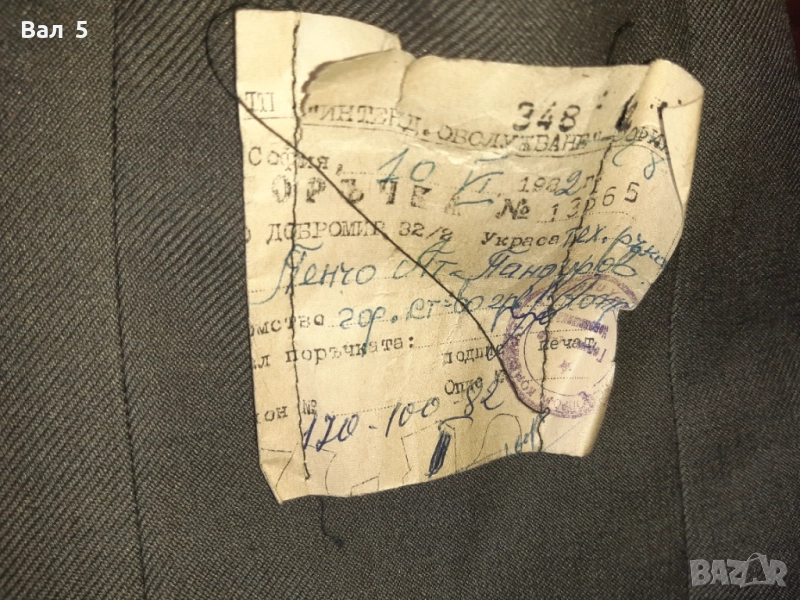 Вал 5
348
ДП "ИНТЕНД. ОБСЛУЖВАНЕ"
София, 10 VI 1982 г.
ОРЪЧКА № 13265
ДОБРОМИР 82/2 Украса тех. ръко
Пенчо Ат. Пандуров
омство гор. ст-во гр.
л поръчката: подпис печат
Опис №
он №
170-100-82
BAZAR